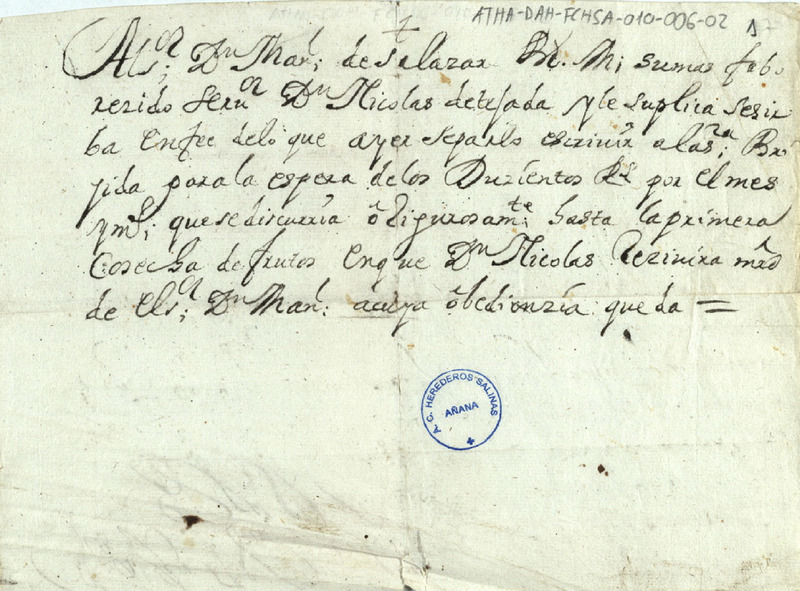 ATHA-DAH-FCHSA-010-006-02 1
Al sor; Dn Manl; de Salazar Bl. Ms; su mas fabo
rezido seruor Dn Nicolas de tejada y le suplica se sir
ba en fee de lo que ayer se parlo escriuir a la sra; Bri
jida para la espera de los Duzientos Rs por el mes
que se discurria o digurosamte; hasta la primera
Cosecha de frutos en que Dn Nicolas Reziuira mrd
de el sr; Dn Manl; a cuya obedienzia queda =
A. C. HEREDEROS SALINAS
AÑANA